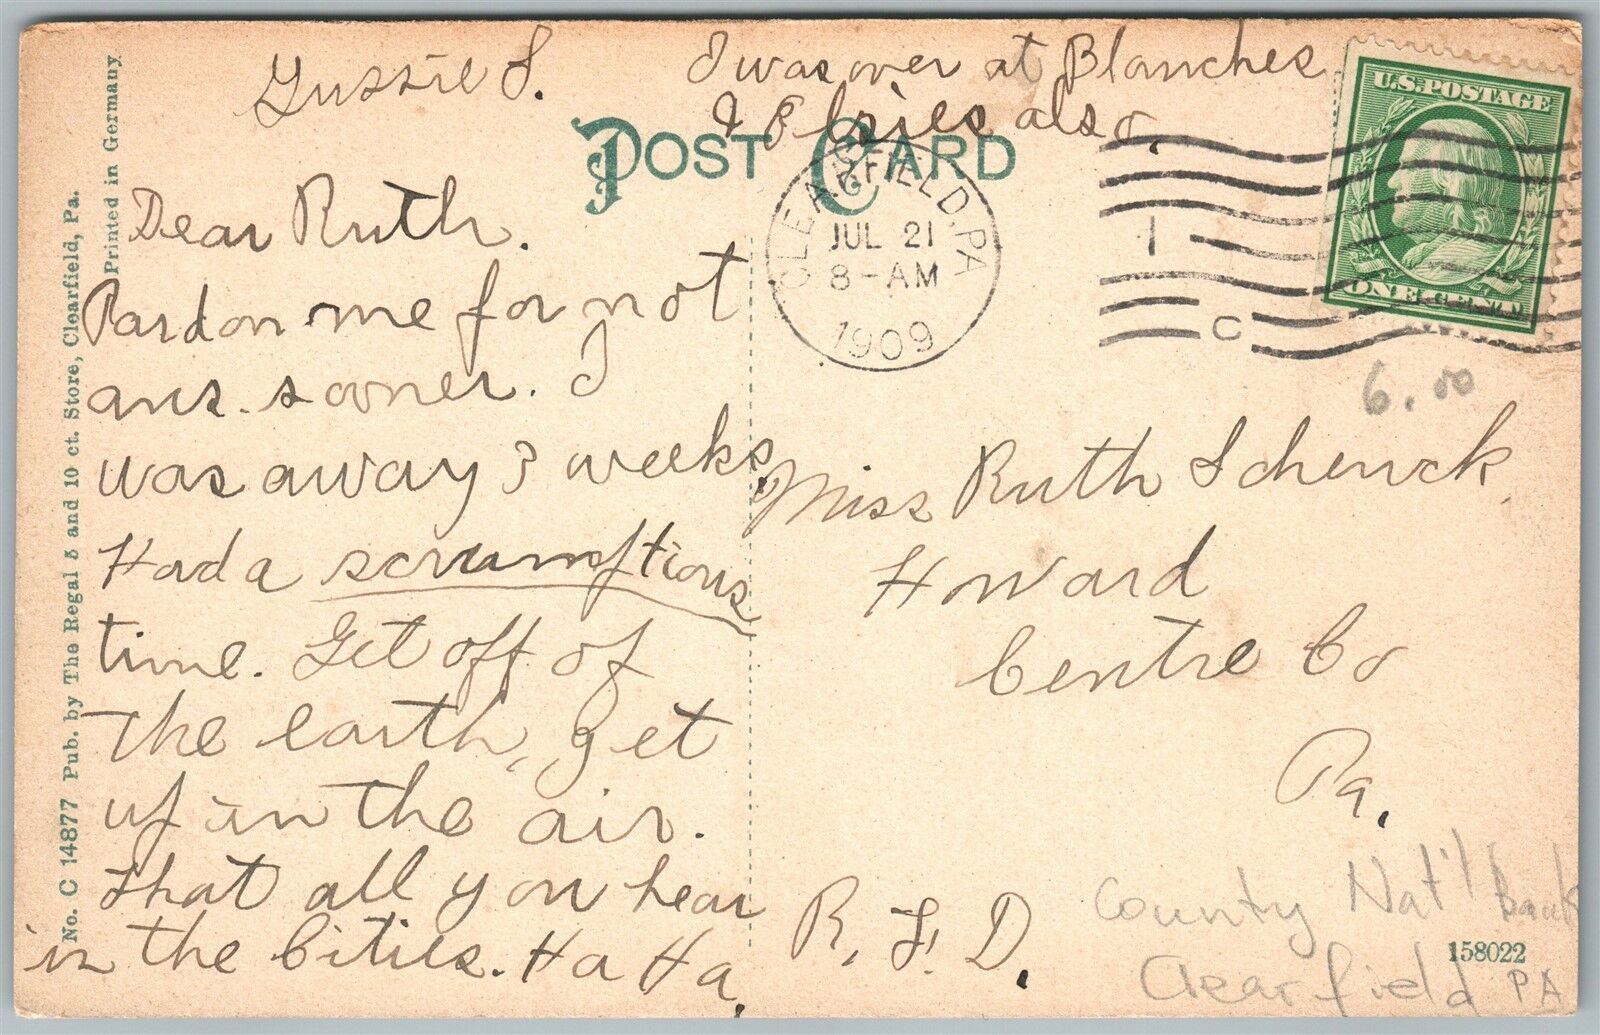 Gussie S.
I was over at Blanches
& Bries also.
POST CARD
CLEARFIELD, PA
JUL 21
8-AM
1909
1
C
U.S. POSTAGE
ONE CENT
6.00
Dear Ruth.
Pardon me for not
ans. sooner. I
was away 3 weeks.
Had a scrumptious
time. Get off of
the earth, get
up in the air.
that all you hear
in the Cities. Ha Ha.
Miss Ruth Schenck.
Howard
Centre Co
Pa.
R. F. D.
County Nat'l Bank
Clearfield PA
158022
No. C 14877 Pub. by The Regal 5 and 10 ct. Store, Clearfield, Pa.
Printed in Germany